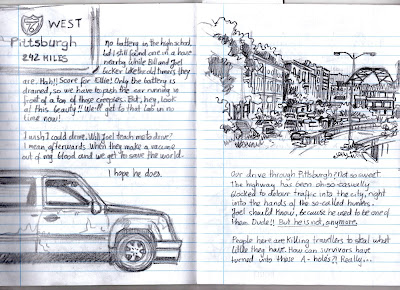 76
WEST
Pittsburgh
242 MILES
No battery in the high school,
but I still found one in a house
nearby while Bill and Joel
bicker like the old timers they
are. Hah!! Score for Ellie! Only the battery is
drained, so we have to push the car running in
front of a ton of those creepies. But, hey, look
at this beauty!! We'll get to that lab in no
time now!
I wish I could drive. Will Joel teach me to drive?
I mean, afterwards when they make a vaccine
out of my blood and we get to save the world.
I hope he does.
Our drive through Pittsburgh? Not so sweet.
The highway has been oh-so-casually
blocked to detour traffic into the city, right
into the hands of the so-called hunters.
Joel should know, because he used to be one of
them. Dude!! But he is not, anymore.
People here are killing travellers to steal what
little they have. How can survivors have
turned into these A-holes?! Really...